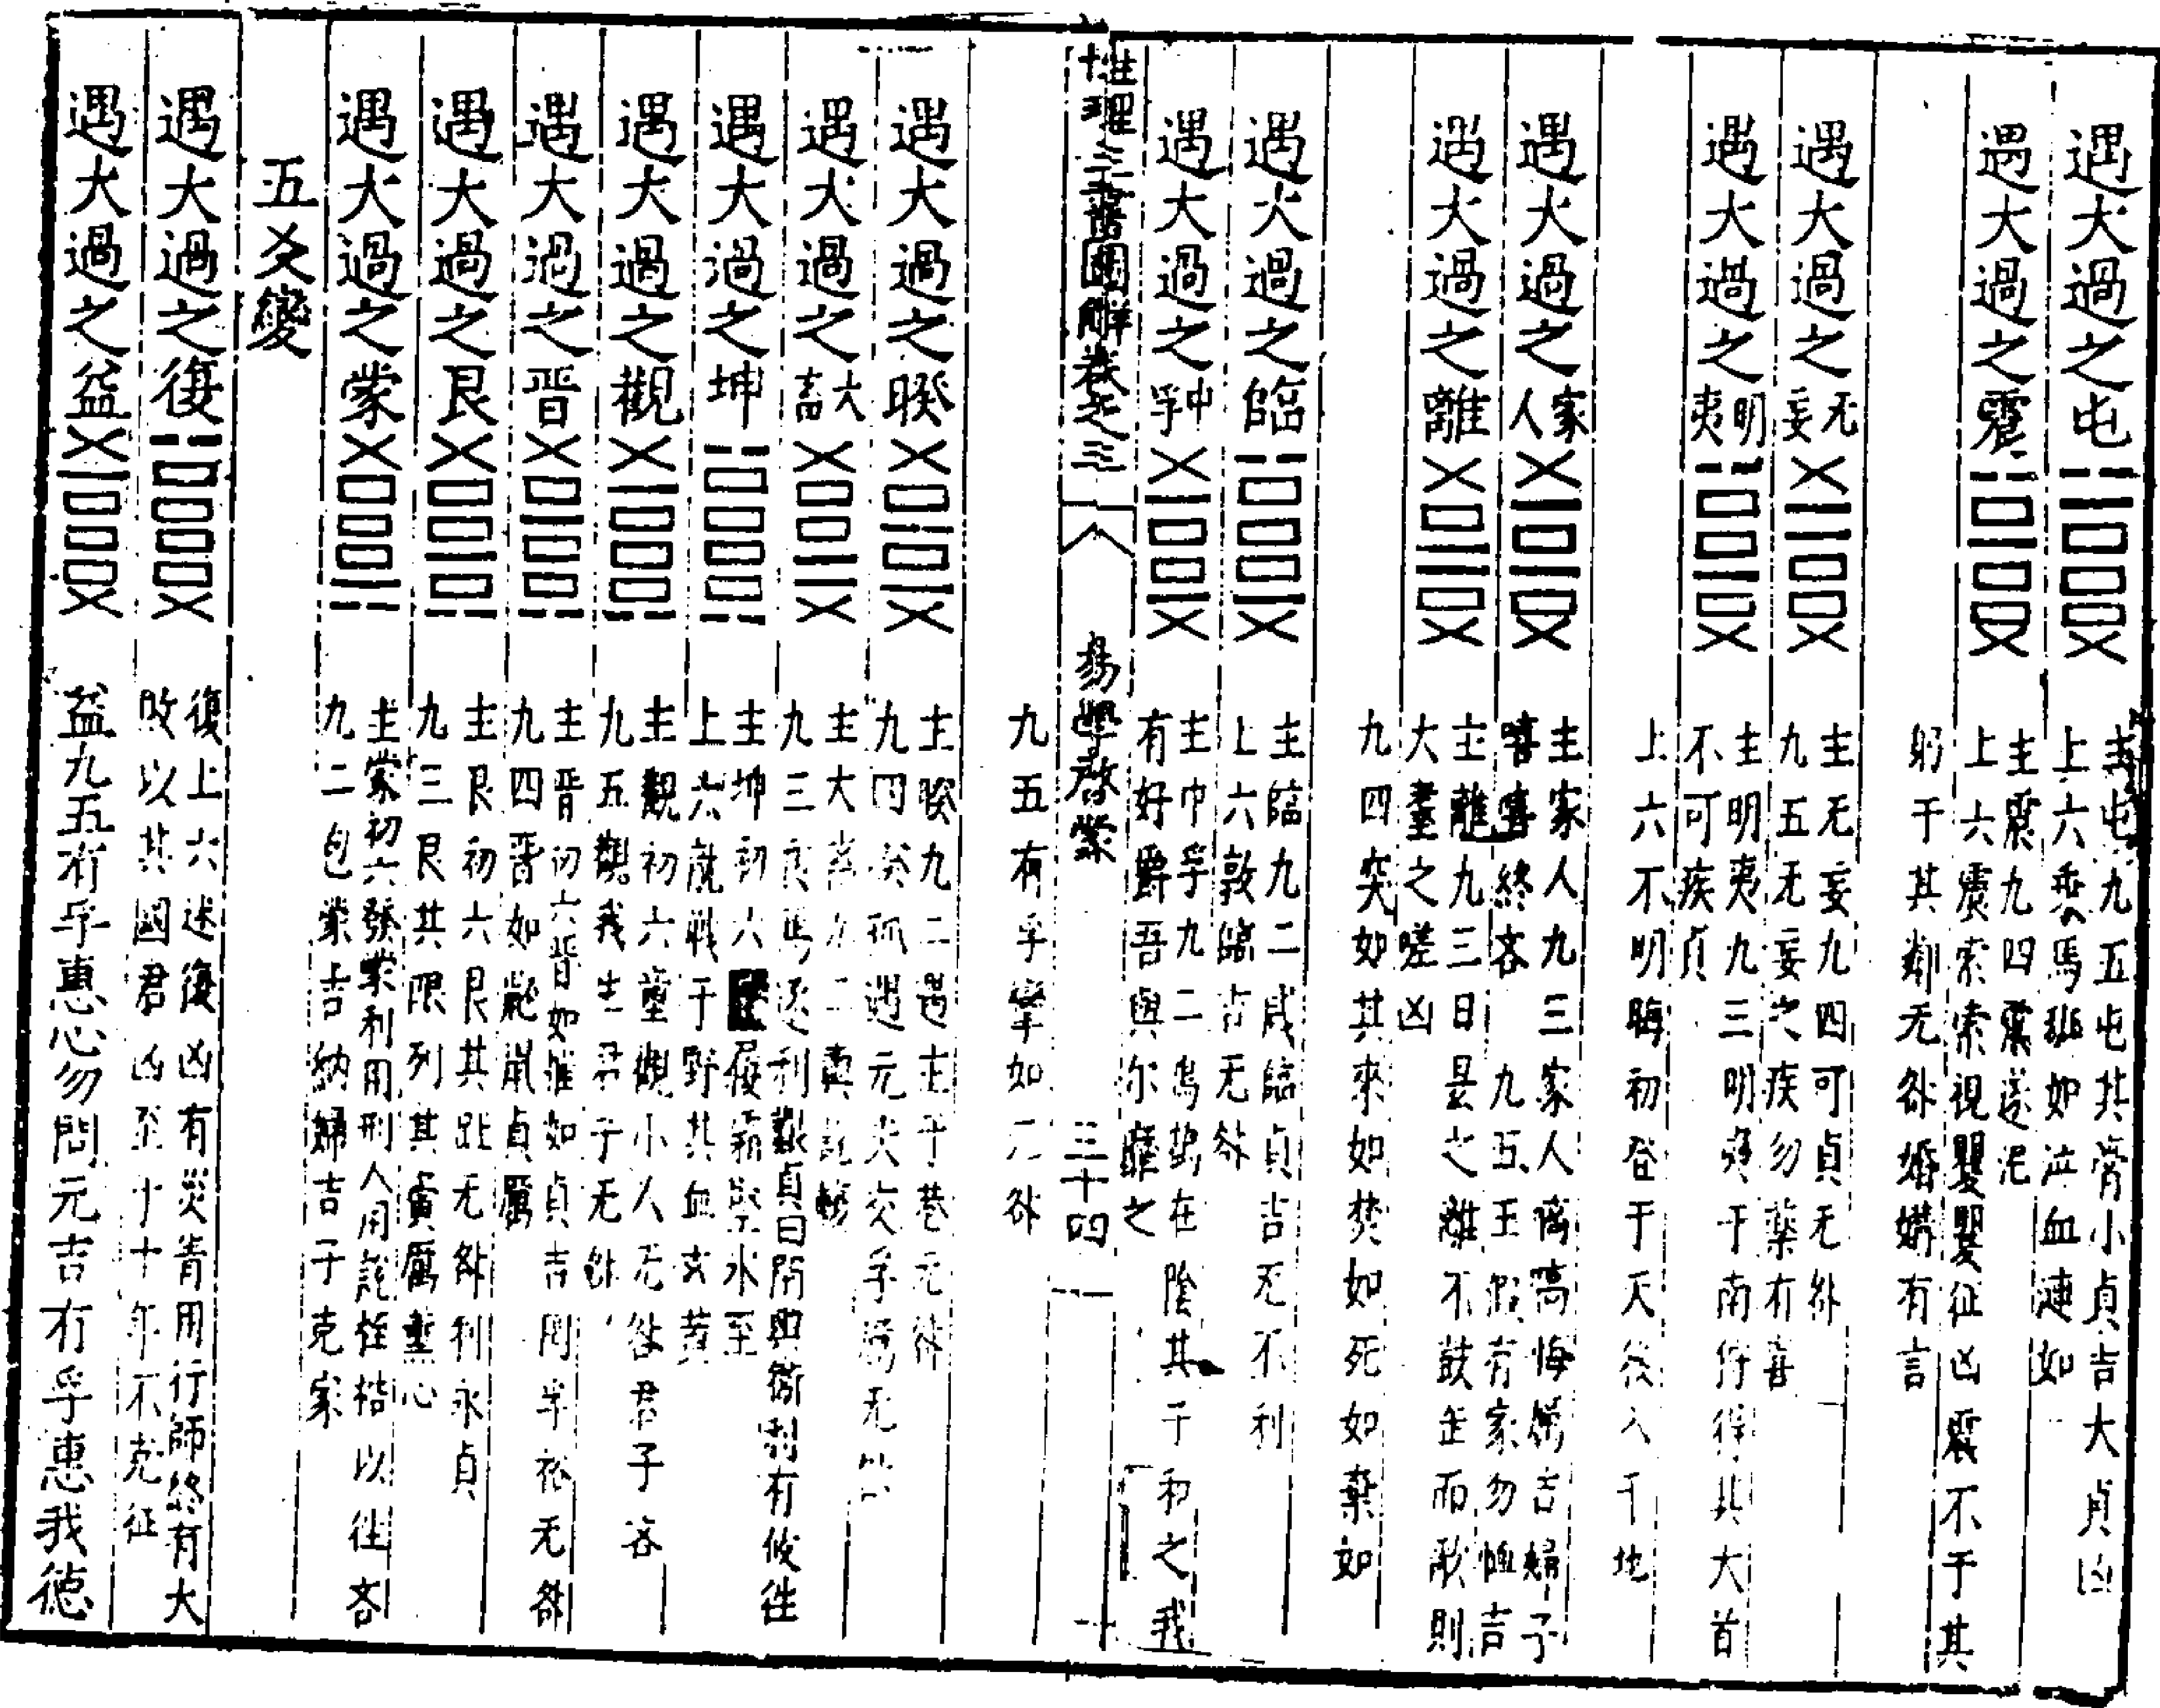 遇大過之屯
主屯九五屯其膏小貞吉大貞凶
上六乘馬班如泣血漣如
遇大過之震
主震九四震遂泥
上六震索索視矍矍征凶震不于其
躬于其鄰无咎婚媾有言
遇大過之无妄
主无妄九四可貞无咎
九五无妄之疾勿藥有喜
遇大過之明夷
主明夷九三明夷于南狩得其大首
不可疾貞
上六不明晦初登于天後入于地
遇大過之家人
主家人九三家人嗃嗃悔厲吉婦子
嘻嘻終吝 九五王假有家勿恤吉
遇大過之離
主離九三日昃之離不鼓缶而歌則
大耋之嗟凶
九四突如其來如焚如死如棄如
遇大過之臨
主臨九二咸臨貞吉无不利
上六敦臨吉无咎
遇大過之中孚
主中孚九二鳴鶴在陰其子和之我
有好爵吾與尔靡之
性理三書圖解卷之三 易學啓蒙 三十四
九五有孚攣如无咎
遇大過之睽
主睽九二遇主于巷无咎
九四睽孤遇元夫交孚厲无咎
遇大過之大畜
主大畜九二輿說輹
九三良馬逐利艱貞曰閑輿衛利有攸往
遇大過之坤
主坤初六履霜堅氷至
上六龍戰于野其血玄黃
遇大過之觀
主觀初六童觀小人无咎君子吝
九五觀我生君子无咎
遇大過之晋
主晋初六晋如摧如貞吉罔孚裕无咎
九四晋如鼫鼠貞厲
遇大過之艮
主艮初六艮其趾无咎利永貞
九三艮其限列其夤厲薰心
遇大過之蒙
主蒙初六發蒙利用刑人用說桎梏以往吝
九二包蒙吉納婦吉子克家
五爻變
遇大過之復
復上六迷復凶有災眚用行師終有大
敗以其國君凶至于十年不克征
遇大過之益
益九五有孚惠心勿問元吉有孚惠我德